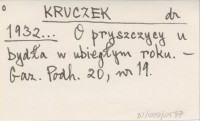 KRUCZEK dr
1932... O pryszczycy u
bydła w ubiegłym roku. —
Gaz. Podh. 20, nr 19.